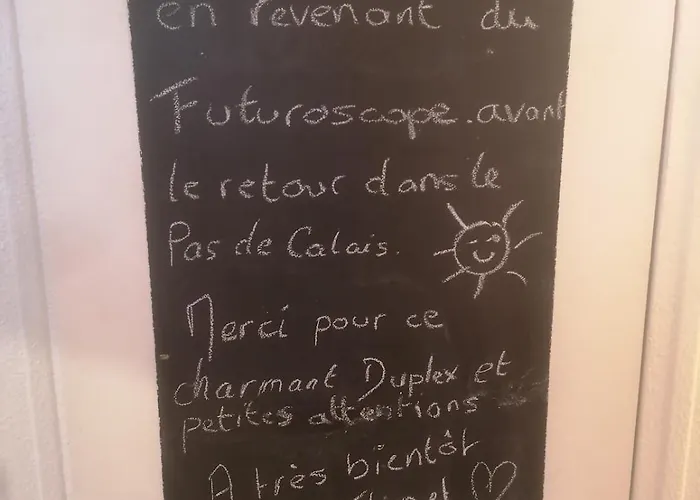 en revenant du
Futuroscope. avant
le retour dans le
Pas de Calais.
Merci pour ce
charmant Duplex et
petites attentions
A très bientôt